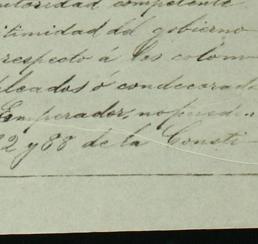 autoridad competente
itimidad del gobierno
respecto á los colom
pleados ó condecorada
Emperador, no puede
2 y 88 de la Consti